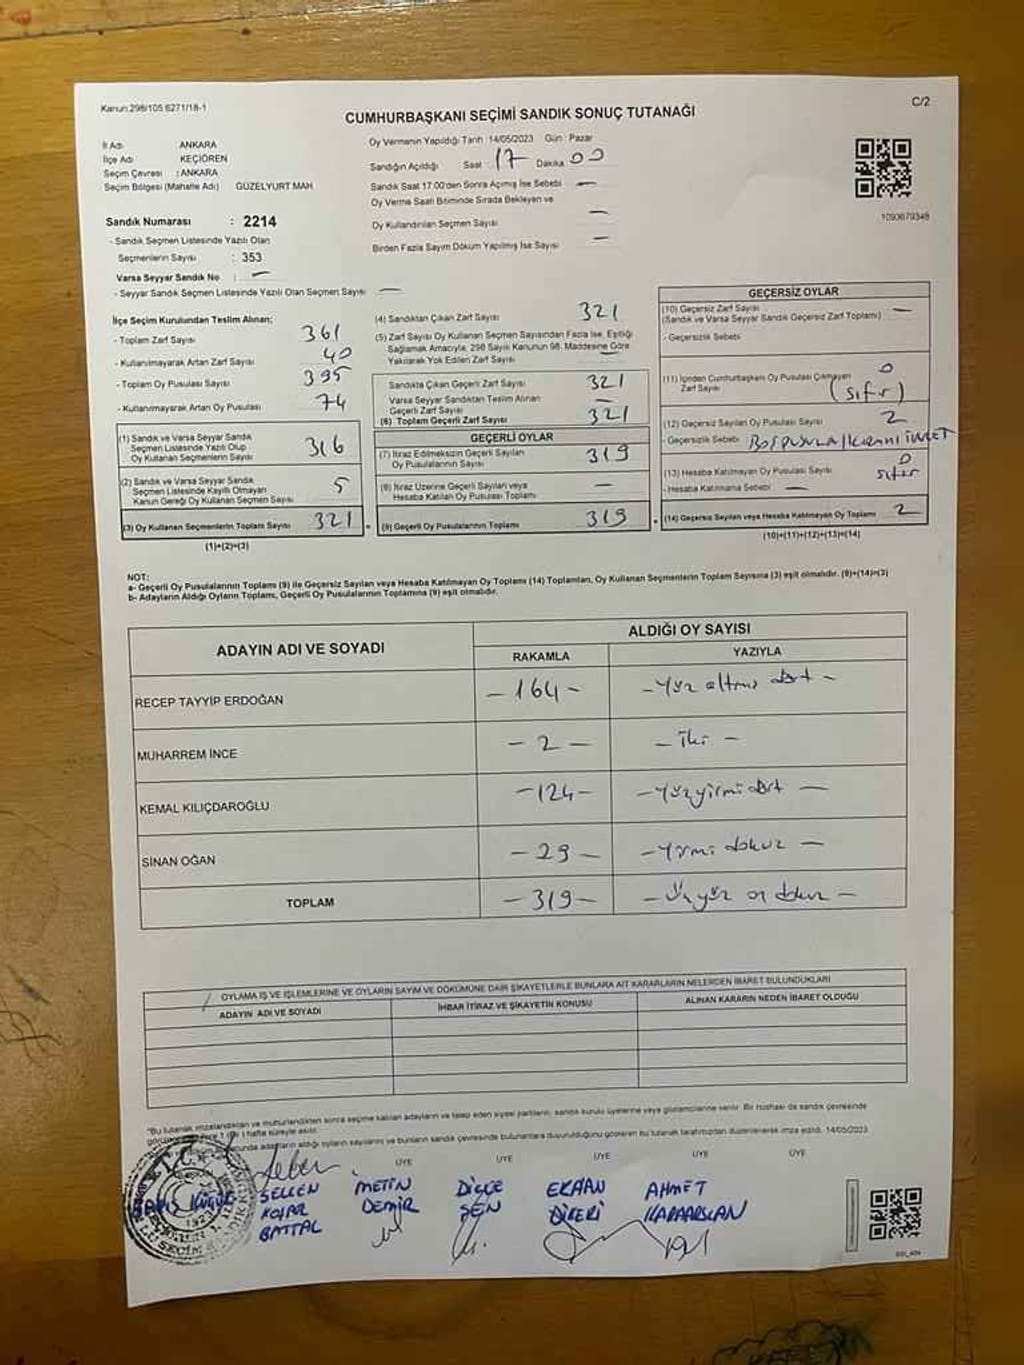 Kanun:298/105 6271/18-1
C/2
CUMHURBAŞKANI SEÇİMİ SANDIK SONUÇ TUTANAĞI
İl Adı ANKARA
İlçe Adı KEÇİÖREN
Seçim Çevresi : ANKARA
Seçim Bölgesi (Mahalle Adı) GÜZELYURT MAH
Sandık Numarası : 2214
- Sandık Seçmen Listesinde Yazılı Olan
Seçmenlerin Sayısı : 353
Varsa Seyyar Sandık No : —
- Seyyar Sandık Seçmen Listesinde Yazılı Olan Seçmen Sayısı —
Oy Vermenin Yapıldığı Tarih :14/05/2023 Gün : Pazar
Sandığın Açıldığı Saat 17 Dakika 00
Sandık Saat 17.00'den Sonra Açımış İse Sebebi —
Oy Verme Saati Bitiminde Sırada Bekleyen ve
Oy Kullandırılan Seçmen Sayısı —
Birden Fazla Sayım Döküm Yapılmış İse Sayısı —
1093679348
İlçe Seçim Kurulundan Teslim Alınan:
- Toplam Zarf Sayısı 361
- Kullanılmayarak Artan Zarf Sayısı 40
- Toplam Oy Pusulası Sayısı 395
- Kullanılmayarak Artan Oy Pusulası 74
(1) Sandık ve Varsa Seyyar Sandık
Seçmen Listesinde Yazılı Olup
Oy Kullanan Seçmenlerin Sayısı 316
(2) Sandık ve Varsa Seyyar Sandık
Seçmen Listesinde Kayıtlı Olmayan
Kanun Gereği Oy Kullanan Seçmen Sayısı 5
(3) Oy Kullanan Seçmenlerin Toplam Sayısı 321
(1)+(2)=(3)
(4) Sandıktan Çıkan Zarf Sayısı 321
(5) Zarf Sayısı Oy Kullanan Seçmen Sayısından Fazla İse, Eşitliği
Sağlamak Amacıyla, 298 Sayılı Kanunun 98. Maddesine Göre
Yakılarak Yok Edilen Zarf Sayısı —
Sandıkta Çıkan Geçerli Zarf Sayısı 321
Varsa Seyyar Sandıktan Teslim Alınan
Geçerli Zarf Sayısı —
(6) Toplam Geçerli Zarf Sayısı 321
GEÇERLİ OYLAR
(7) İtiraz Edilmeksizin Geçerli Sayılan
Oy Pusulalarının Sayısı 319
(8) İtiraz Üzerine Geçerli Sayılan veya
Hesaba Katılan Oy Pusulası Toplamı —
(9) Geçerli Oy Pusulalarının Toplamı 319
GEÇERSİZ OYLAR
(10) Geçersiz Zarf Sayısı
(Sandık ve Varsa Seyyar Sandık Geçersiz Zarf Toplamı) —
- Geçersizlik Sebebi
(11) İçinden Cumhurbaşkanı Oy Pusulası Çıkmayan
Zarf Sayısı 0 (sıfır)
(12) Geçersiz Sayılan Oy Pusulası Sayısı 2
- Geçersizlik Sebebi BOŞ PUSULA
(13) Hesaba Katılmayan Oy Pusulası Sayısı 0 sıfır
- Hesaba Katılmama Sebebi —
(14) Geçersiz Sayılan veya Hesaba Katılmayan Oy Toplamı 2
(10)+(11)+(12)+(13)=(14)
NOT:
a- Geçerli Oy Pusulalarının Toplamı (9) ile Geçersiz Sayılan veya Hesaba Katılmayan Oy Toplamı (14) Toplamları, Oy Kullanan Seçmenlerin Toplam Sayısına (3) eşit olmalıdır. (9)+(14)=(3)
b- Adayların Aldığı Oyların Toplamı, Geçerli Oy Pusulalarının Toplamına (9) eşit olmalıdır.
ADAYIN ADI VE SOYADI
ALDIĞI OY SAYISI
RAKAMLA YAZIYLA
RECEP TAYYİP ERDOĞAN -164- -Yüz altmış dört-
MUHARREM İNCE -2- -İki-
KEMAL KILIÇDAROĞLU -124- -Yüzyirmi dört-
SİNAN OĞAN -29- -Yirmi dokuz-
TOPLAM -319- -Üçyüz on dokuz-
OYLAMA İŞ VE İŞLEMLERİNE VE OYLARIN SAYIM VE DÖKÜMÜNE DAİR ŞİKAYETLERLE BUNLARA AİT KARARLARIN NELERDEN İBARET BULUNDUKLARI
ADAYIN ADI VE SOYADI İHBAR İTİRAZ VE ŞİKAYETİN KONUSU ALINAN KARARIN NEDEN İBARET OLDUĞU
"Bu tutanak imzalandıktan ve mühürlendikten sonra seçime katılan adayların ve talep eden siyasi partilerin, sandık kurulu üyelerine veya gözlemcilerine verilir. Bir nüshası da sandık çevresinde
1 (Bir) hafta süreyle asılır.
adayların aldığı oyların sayılarını ve bunların sandık çevresinde bulunanlara duyurulduğunu gösteren bu tutanak tarafımızdan düzenlenerek imza edildi. 14/05/2023
ÜYE ÜYE ÜYE ÜYE ÜYE
METİN EKAAN AHMET
DEMİR ŞEN DİRERİ KARAARSLAN
BATTAL